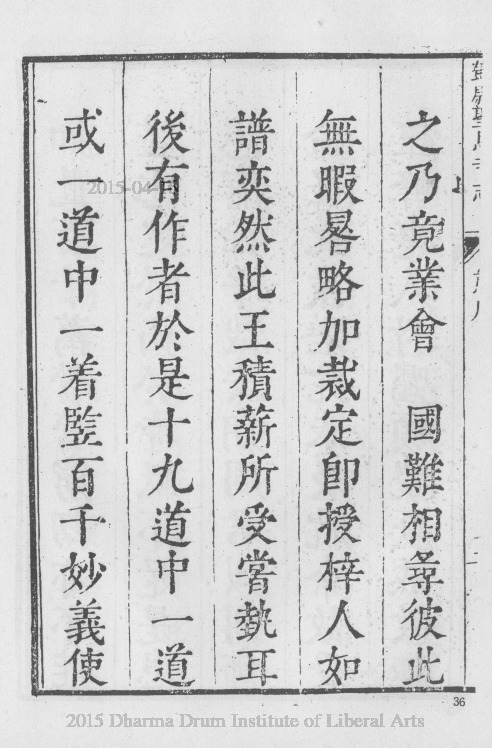 之乃竟業會　國難相尋彼此
無暇畧略加裁定卽授梓人如
譜奕然此王積薪所受嘗埶耳
後有作者於是十九道中一道
或一道中一着竪百千妙義使
36
2015 Dharma Drum Institute of Liberal Arts